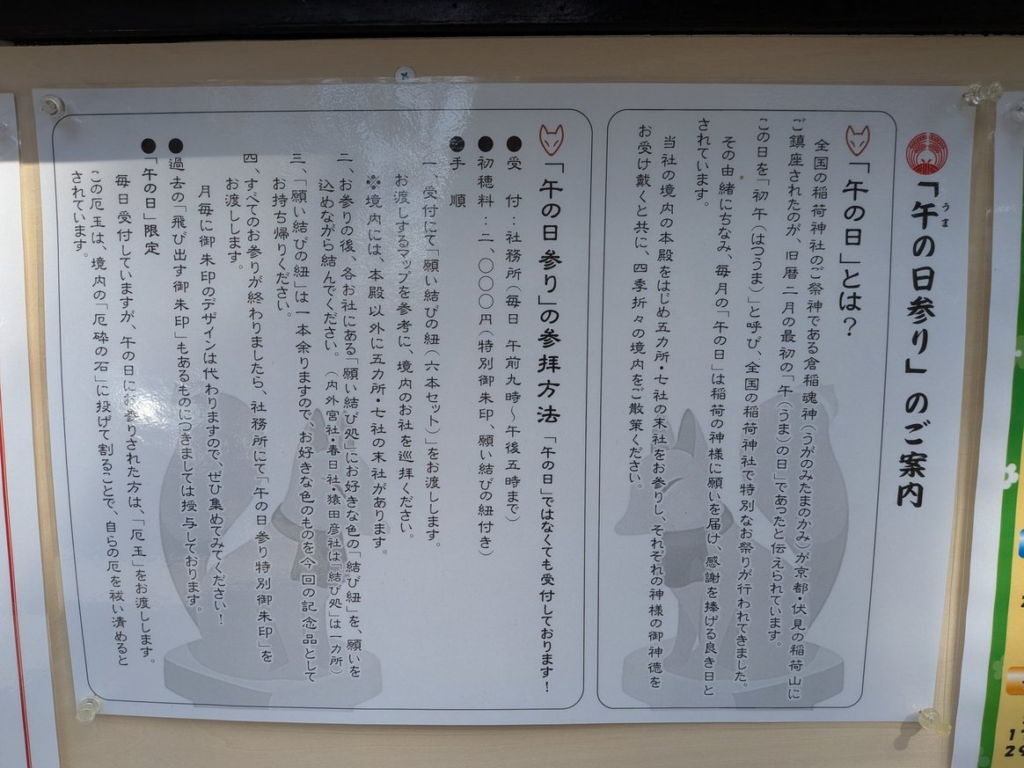 「午の日参り」のご案内
うま
「午の日」とは？
全国の稲荷神社のご祭神である倉稲魂神（うがのみたまのかみ）が京都・伏見の稲荷山に
ご鎮座されたのが、旧暦二月の最初の「午（うま）の日」であったと伝えられています。
この日を「初午（はつうま）」と呼び、全国の稲荷神社で特別なお祭りが行われてきました。
その由緒にちなみ、毎月の「午の日」は稲荷の神様に願いを届け、感謝を捧げる良き日と
されています。
当社の境内の本殿をはじめ五カ所・七社の末社をお参りし、それぞれの神様の御神徳を
お受け戴くと共に、四季折々の境内をご散策ください。
「午の日参り」の参拝方法 「午の日」ではなくても受付しております！
●受　付：社務所（毎日　午前九時～午後五時まで）
●初穂料：二、〇〇〇円（特別御朱印、願い結びの紐付き）
●手　順
一、受付にて「願い結びの紐（六本セット）」をお渡しします。
お渡しするマップを参考に、境内のお社を巡拝ください。
※境内には、本殿以外に五カ所・七社の末社があります。
二、お参りの後、各お社にある「願い結び処」にお好きな色の「結び紐」を、願いを
込めながら結んでください。（内外宮社・春日社・猿田彦社は「結び処」は一カ所）
三、「願い結びの紐」は一本余りますので、お好きな色のものを今回の記念品として
お持ち帰りください。
四、すべてのお参りが終わりましたら、社務所にて「午の日参り特別御朱印」を
お渡しします。
月毎に御朱印のデザインは代わりますので、ぜひ集めてみてください！
●過去の「飛び出す御朱印」もあるものにつきましては授与しております。
●「午の日」限定
毎日受付していますが、午の日にお参りされた方は、「厄玉」をお渡しします。
この厄玉は、境内の「厄砕の石」に投げて割ることで、自らの厄を祓い清めると
されています。